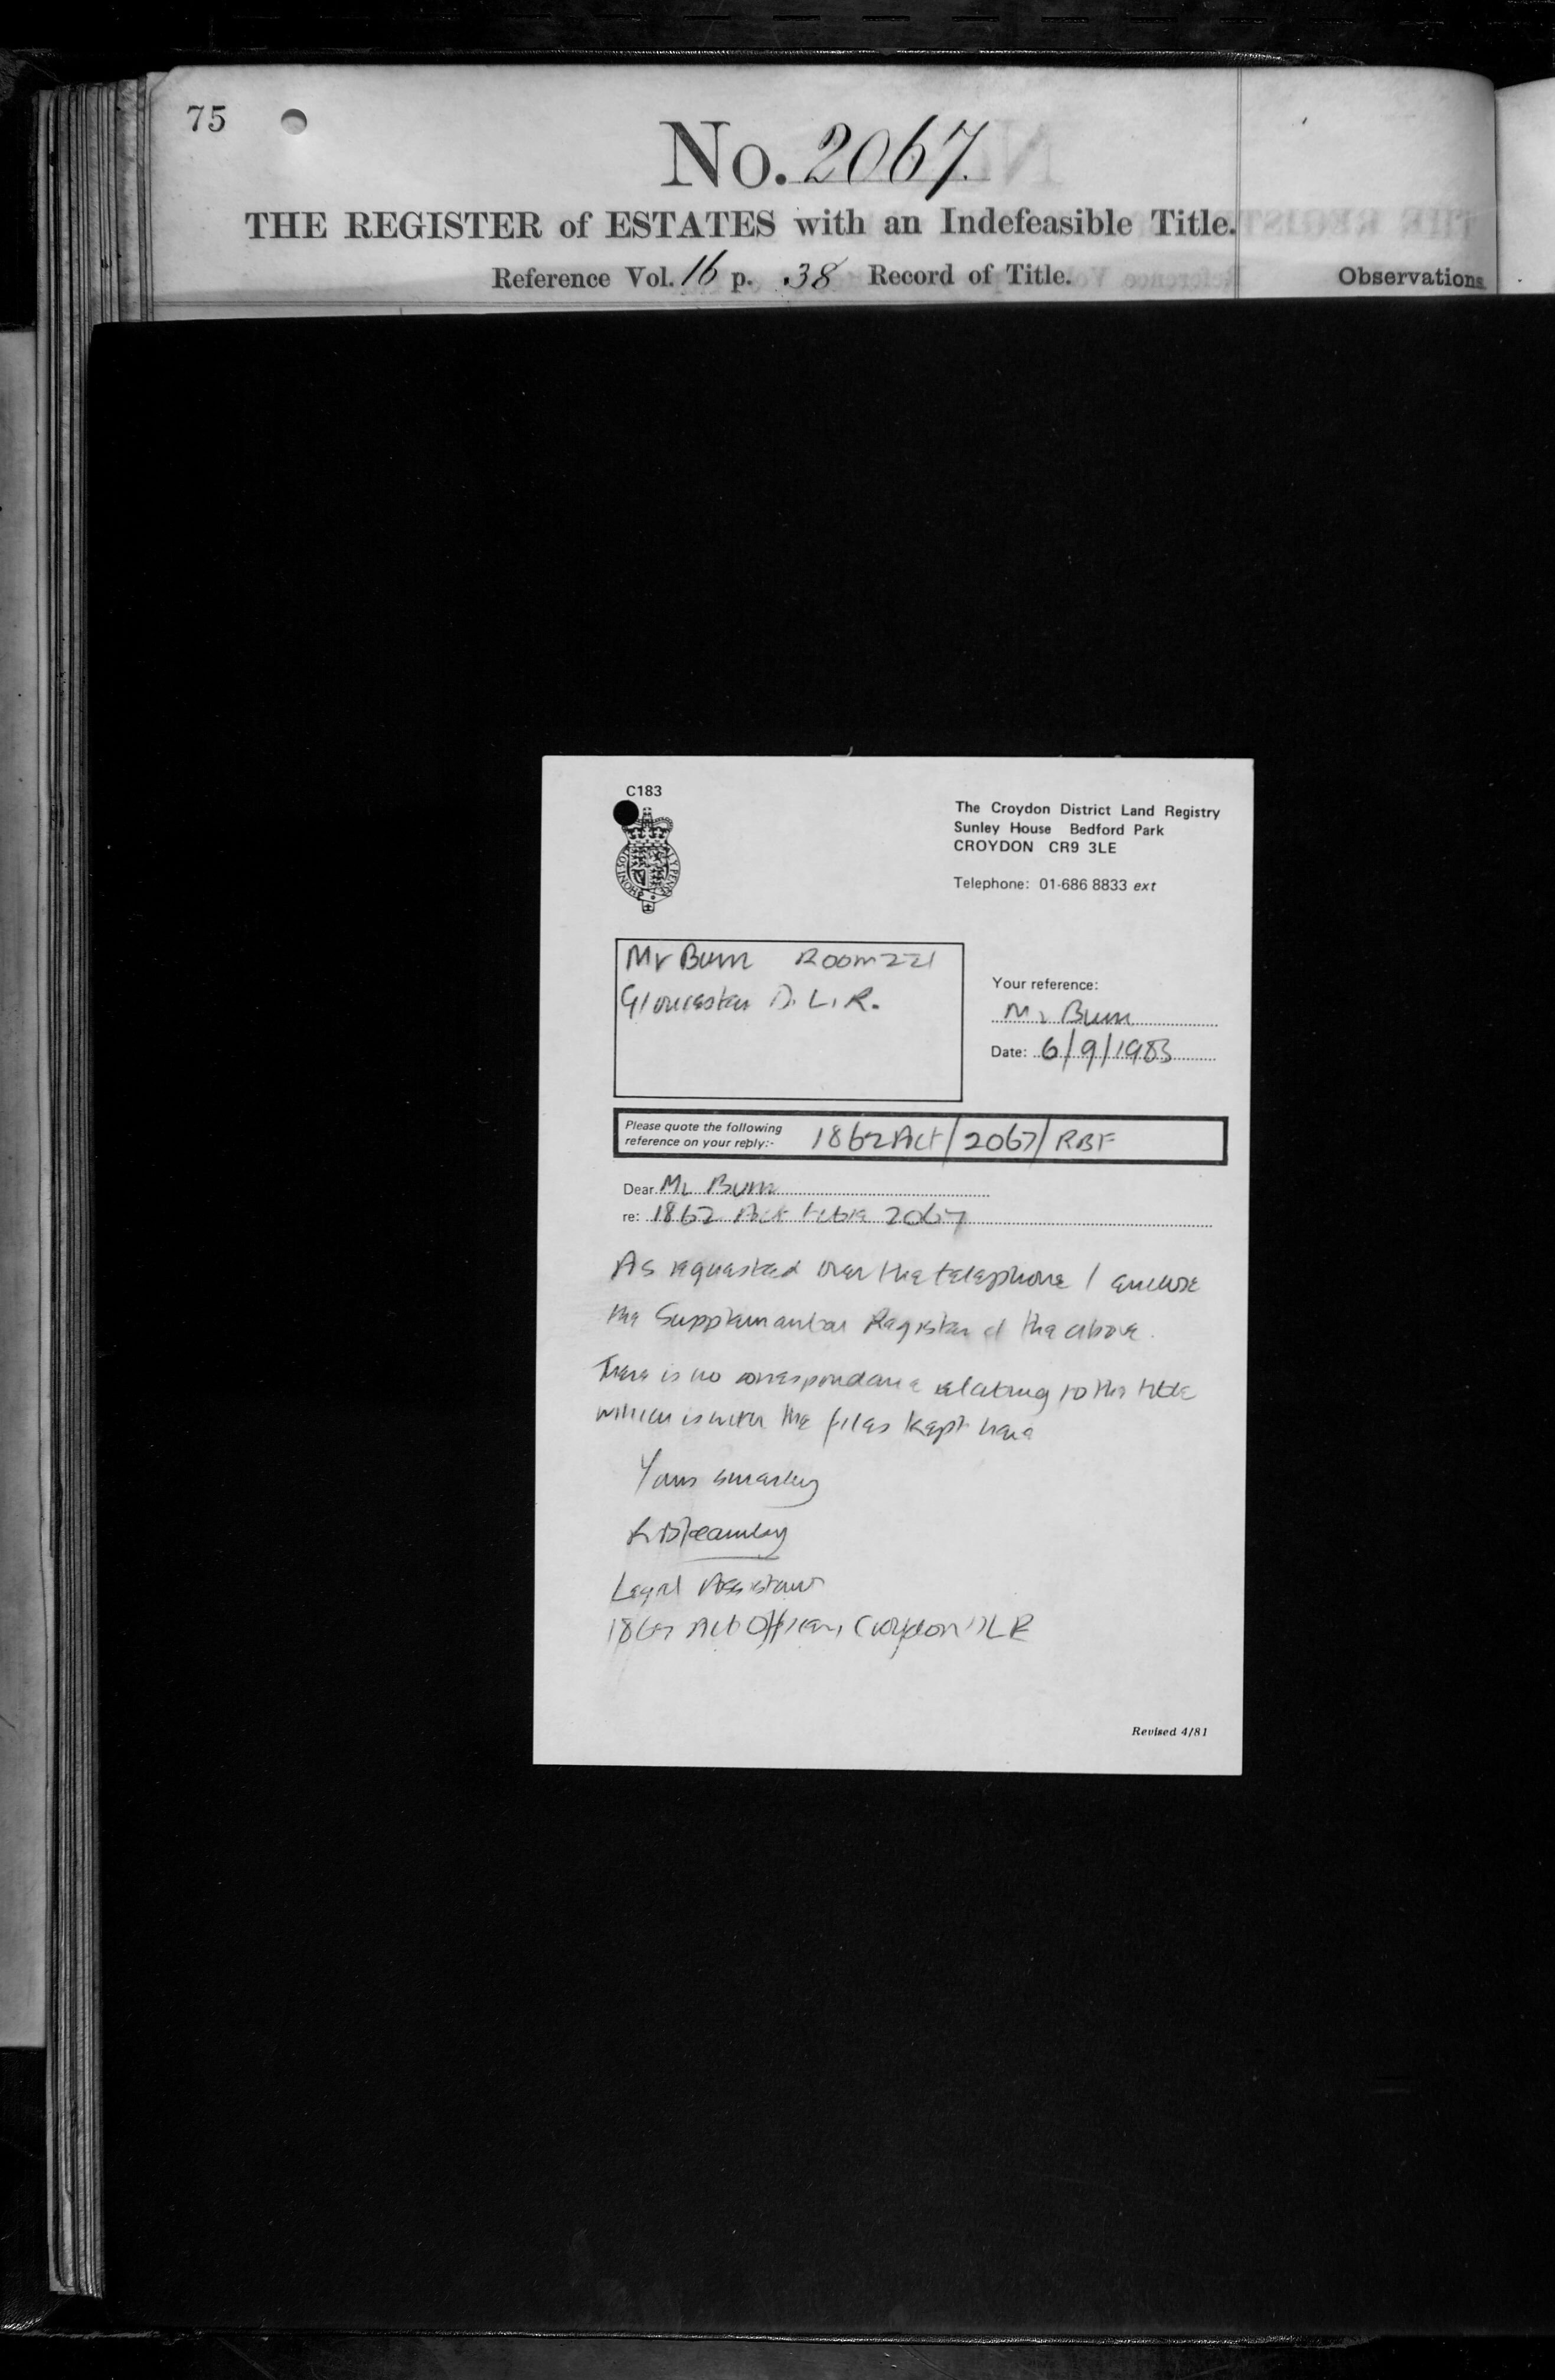 75
No. 2067.
THE REGISTER of ESTATES with an Indefeasible Title.
Reference Vol. 16 p. 38 Record of Title.
Observations
C183
The Croydon District Land Registry
Sunley House Bedford Park
CROYDON CR9 3LE
Telephone: 01-686 8833 ext
Mr Burn Room 221
Gloucester D.L.R.
Your reference:
Mr Burn
Date: 6/9/1983
Please quote the following
reference on your reply:- 1862 Act/2067/RBF
Dear Mr Burn
re: 1862 Act title 2067
As requested over the telephone I enclose
the Supplemental Register of the above.
There is no correspondence relating to this title
which is with the files kept here
Yours sincerely
Legal Assistant
1862 Act Officer, Croydon DLR
Revised 4/81